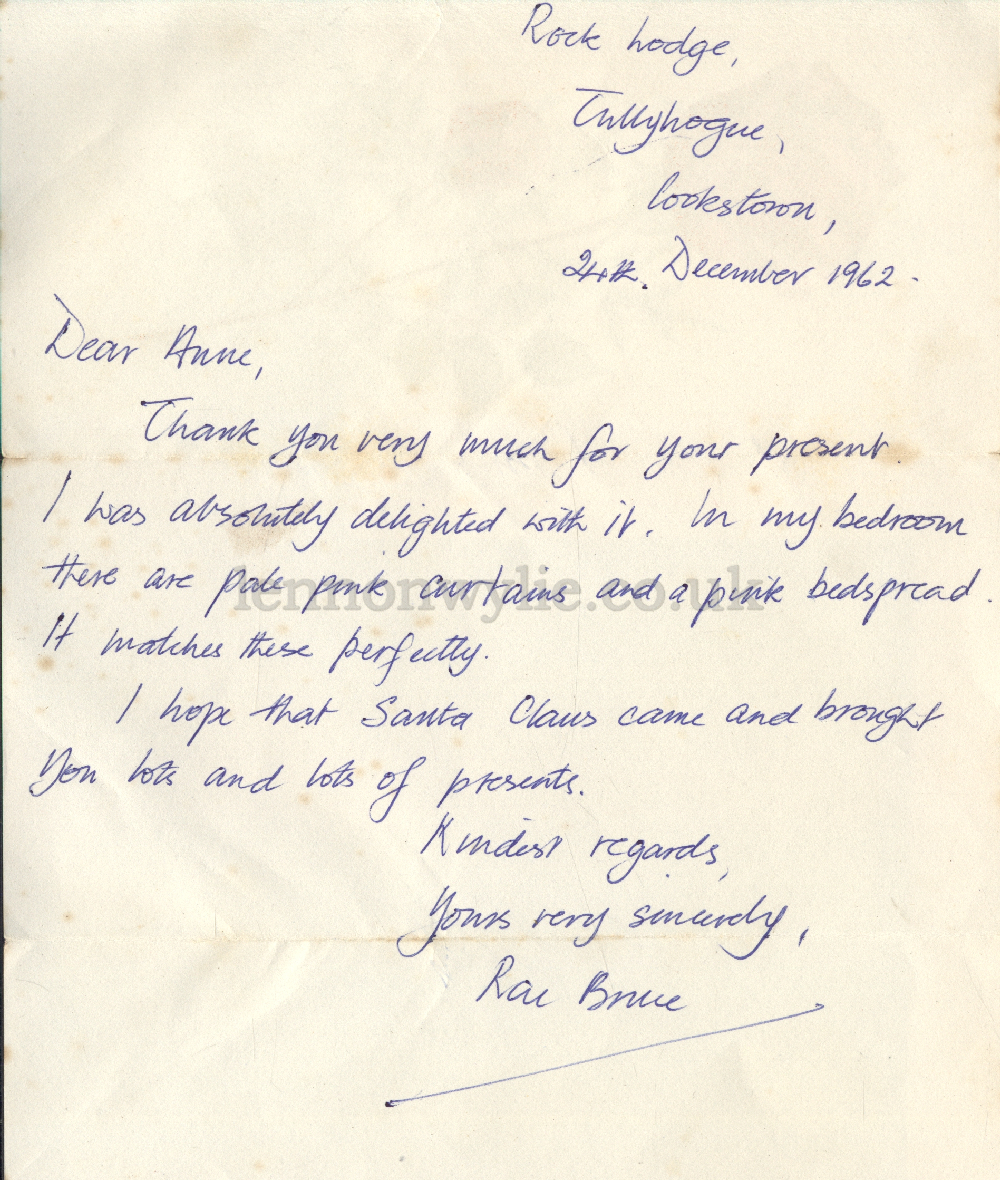 Rock Lodge,
Tullyhogue,
Cookstown,
24th. December 1962.
Dear Anne,
Thank you very much for your present.
I was absolutely delighted with it. In my bedroom
there are pale pink curtains and a pink bedspread.
lennonwylie.co.uk
It matches these perfectly.
I hope that Santa Claus came and brought
you lots and lots of presents.
Kindest regards,
Yours very sincerely,
Rae Bruce